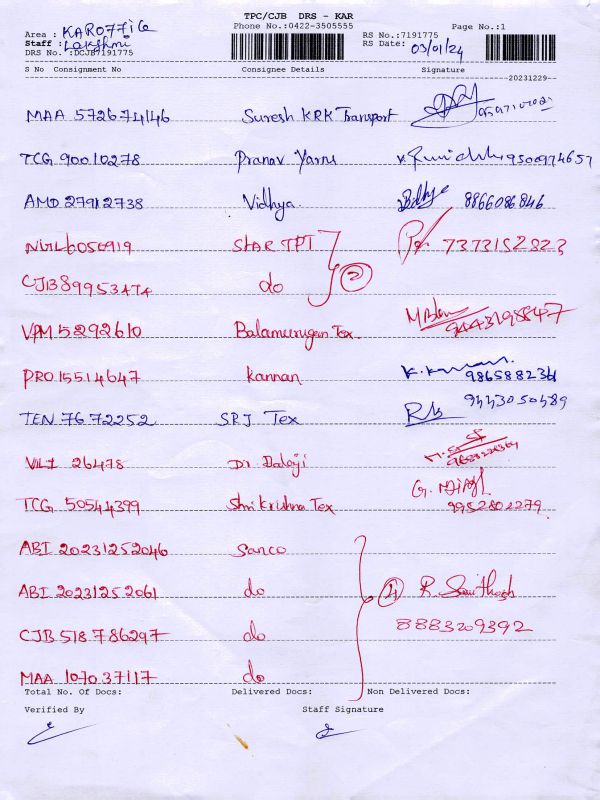 TPC/CJB DRS - KAR
Area : KAR07716 Phone No.:0422-3505555 Page No.:1
Staff : Lakshmi RS No.:7191775
DRS No.:DCJB7191775 RS Date: 03/01/24
S No Consignment No Consignee Details Signature
20231229
MAA 572674146 Suresh KRK Transport
TCG 90010278 Pranav Yarns 9500974657
AMD 27912738 Vidhya 8866086846
6056919 STAR TPT 7373152823
CJB 89953474 do 2
VPM 5292610 Balamurugan Tex. 9443198847
PRO 15514647 kannan K. Kumar 986588234
TEN 7672252 SRJ Tex 9443050489
26478 Dr Balaji
TCG 50544399 Shri Krishna Tex G. 9952802279
ABI 20231252046 Sanco
ABI 20231252061 do 4 R. Santhosh
CJB 518786297 do 8883209392
MAA 107037117 do
Total No. Of Docs: Delivered Docs: Non Delivered Docs:
Verified By Staff Signature